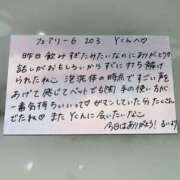 フェアリー6 203 Yくんへ♡
昨日飲みすぎたみたいなのにありがとう
話しがおもしろいからすぐにすき 解け
られたねこ 泡洗体の時点ですごい声を
あげて 感じてベットでも胸 手の使い方が
一番気持ちいいってガマンしていたらたくさん
でたね♡ またYくんに会いたいなこ
今日はありがとう! るいより